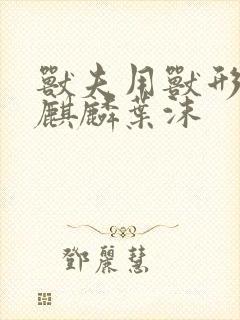 獸夫用獸形
麒麟葉沫
鄧麗慧